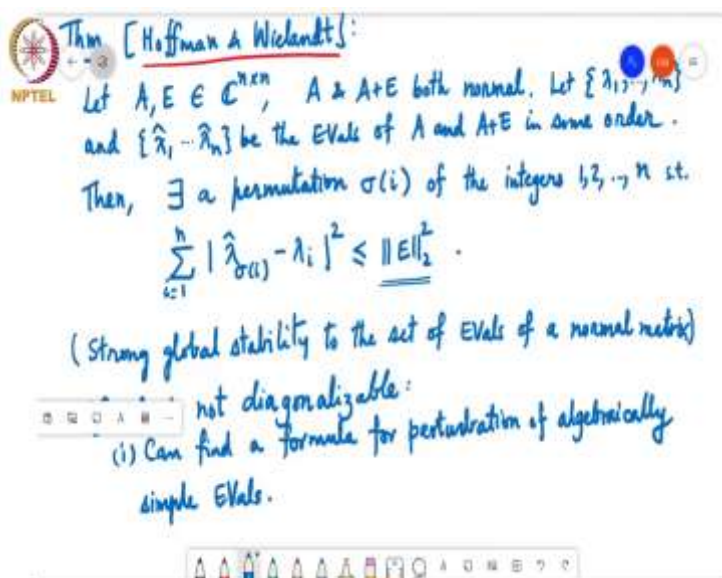 Thm [Hoffman & Wielandt]:
NPTEL
Let A, E ∈ ℂ^{n×n}, A & A+E both normal. Let {λ₁, ..., λₙ}
and {λ̂₁ ... λ̂ₙ} be the EVals of A and A+E in some order.
Then, ∃ a permutation σ(i) of the integers 1,2,..,n s.t.
∑_{i=1}^{n} |λ̂_{σ(i)} - λᵢ|² ≤ ||E||₂².
(Strong global stability to the set of EVals of a normal matrix)
not diagonalizable:
(i) Can find a formula for perturbation of algebraically
simple EVals.